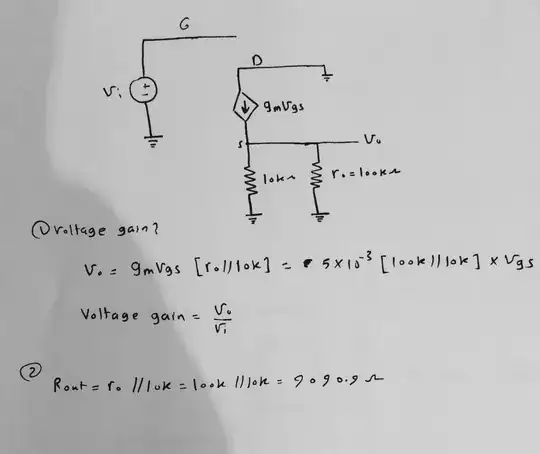 G
D
Vi
+
-
gmVgs
S
Vo
10kΩ
ro=100kΩ
① Voltage gain?
Vo = gmVgs [ro//10k] = 5x10⁻³ [100k//10k] x Vgs
Voltage gain = Vo/Vi
② Rout = ro //10k = 100k //10k = 9090.9 Ω